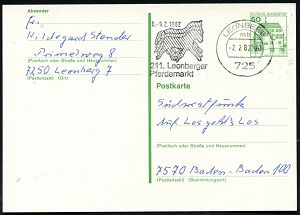 Absender
Fr.
Hildegard Stender
Primelweg 8
(Straße und Hausnummer oder Postfach)
7250 Leonberg 7
(Postleitzahl) (Ort)
8.-9.2.1982
211. Leonberger
Pferdemarkt
LEONBERG
mb
-7.2.82
725
60
DEUTSCHE BUNDESPOST
Postkarte
Südwestfunk
Auf Los geht's Los
(Straße und Hausnummer oder Postfach)
7570 Baden-Baden 100
(Postleitzahl) (Bestimmungsort)